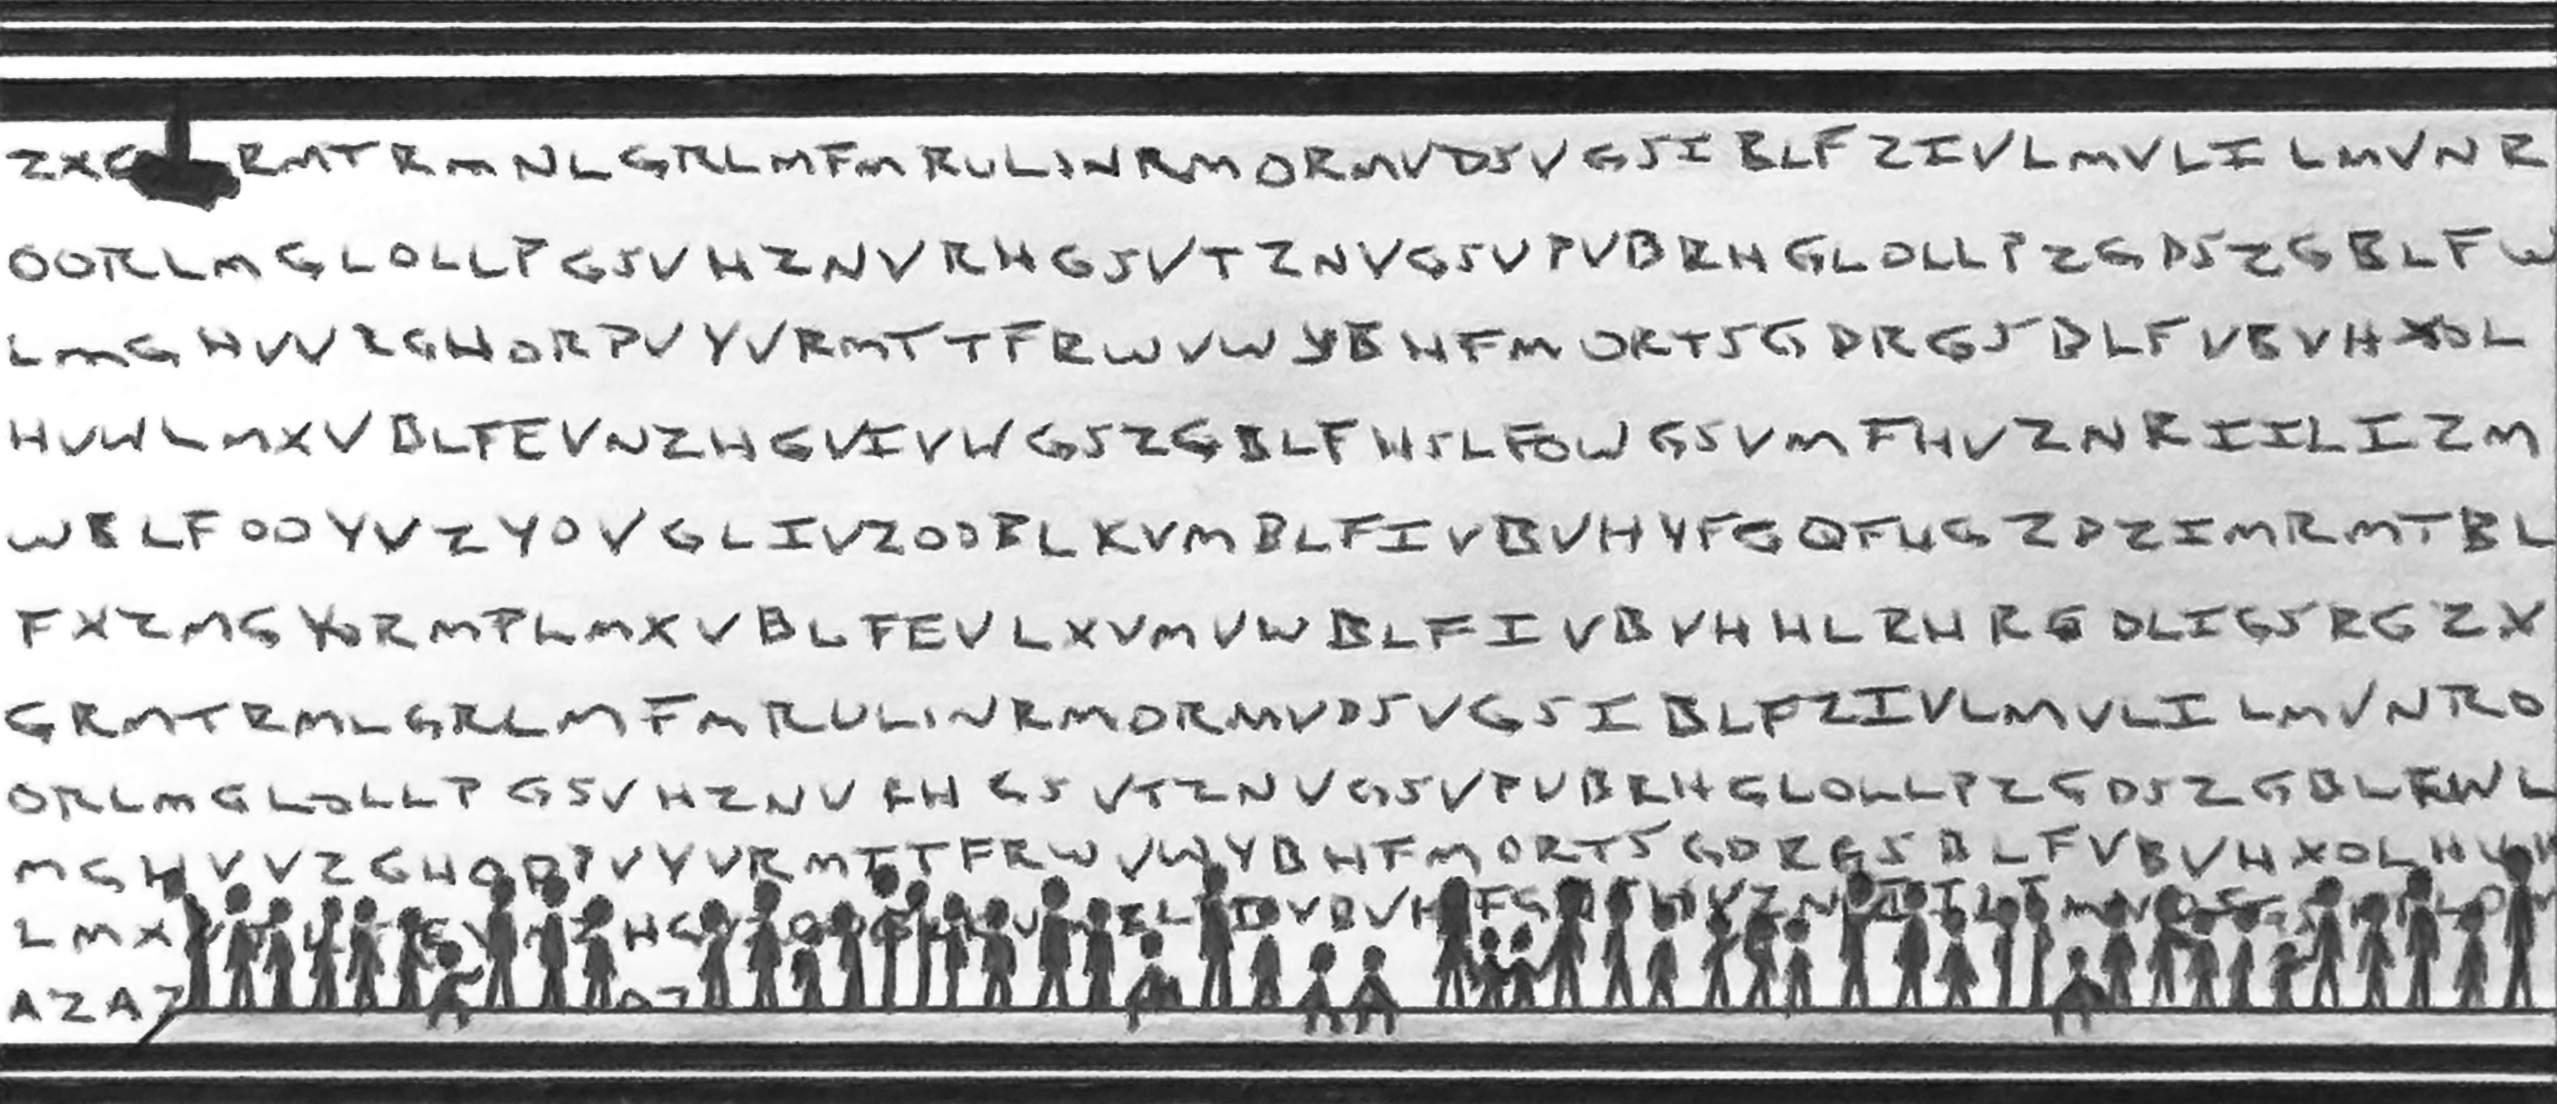 ZXG RMTRMNLGRLMFMRULINRMORMVDSVGSIBLFZIVLMVLILMVNR
OORLMGLOLLPGSVHZNVRHGSVTZNVGSVPVBRHGLOLLPZGDSZGBLFW
LMGHVVZGHORPVYVRMTTFRWVWYBHFMORTSGDRGSBLFVBVHXOL
HVWLMXVBLFEVNZHGVIVWGSZGBLFHSLFOWGSVMFHVZNRIILIZM
WBLFOOYVZYOVGLIVZOOBLKVMBLFIVBVHYFGQFHGZDZIMRMTBL
FXZMGYORMPLMXVBLFEVLXVMVWBLFIVBVHHLRHRGDLIGSRGZX
GRMTRMLGRLMFMRULINRMORMVDSVGSIBLFZIVLMVLILMVNRO
ORLMGLOLLPGSVHZNVRHGSVTZNVGSVPVBRHGLOLLPZGDSZGBLFWL
MGHVVZGHORPVYVRMTTFRWVWYBHFMORTSGDRGSBLFVBVHXOLHV
LMX
AZAZ